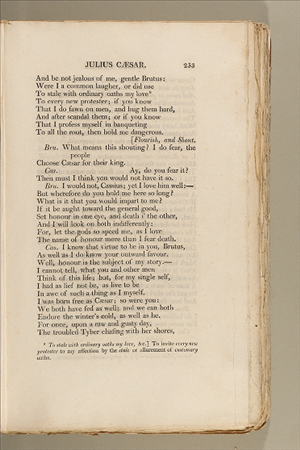 JULIUS CÆSAR. 253
And be not jealous of me, gentle Brutus:
Were I a common laugher, or did use
To stale with ordinary oaths my love*
To every new protester; if you know
That I do fawn on men, and hug them hard,
And after scandal them; or if you know
That I profess myself in banqueting
To all the rout, then hold me dangerous.
[Flourish, and Shout.
Bru. What means this shouting? I do fear, the
people
Choose Cæsar for their king.
Cas. Ay, do you fear it?
Then must I think you would not have it so.
Bru. I would not, Cassius; yet I love him well:—
But wherefore do you hold me here so long?
What is it that you would impart to me?
If it be aught toward the general good,
Set honour in one eye, and death i' the other,
And I will look on both indifferently:
For, let the gods so speed me, as I love
The name of honour more than I fear death.
Cas. I know that virtue to be in you, Brutus,
As well as I do know your outward favour.
Well, honour is the subject of my story.—
I cannot tell, what you and other men
Think of this life; but, for my single self,
I had as lief not be, as live to be
In awe of such a thing as I myself.
I was born free as Cæsar; so were you:
We both have fed as well; and we can both
Endure the winter's cold, as well as he.
For once, upon a raw and gusty day,
The troubled Tyber chafing with her shores,
* To stale with ordinary oaths my love, &c.] To invite every new
protester to my affection by the stale or allurement of customary
oaths.